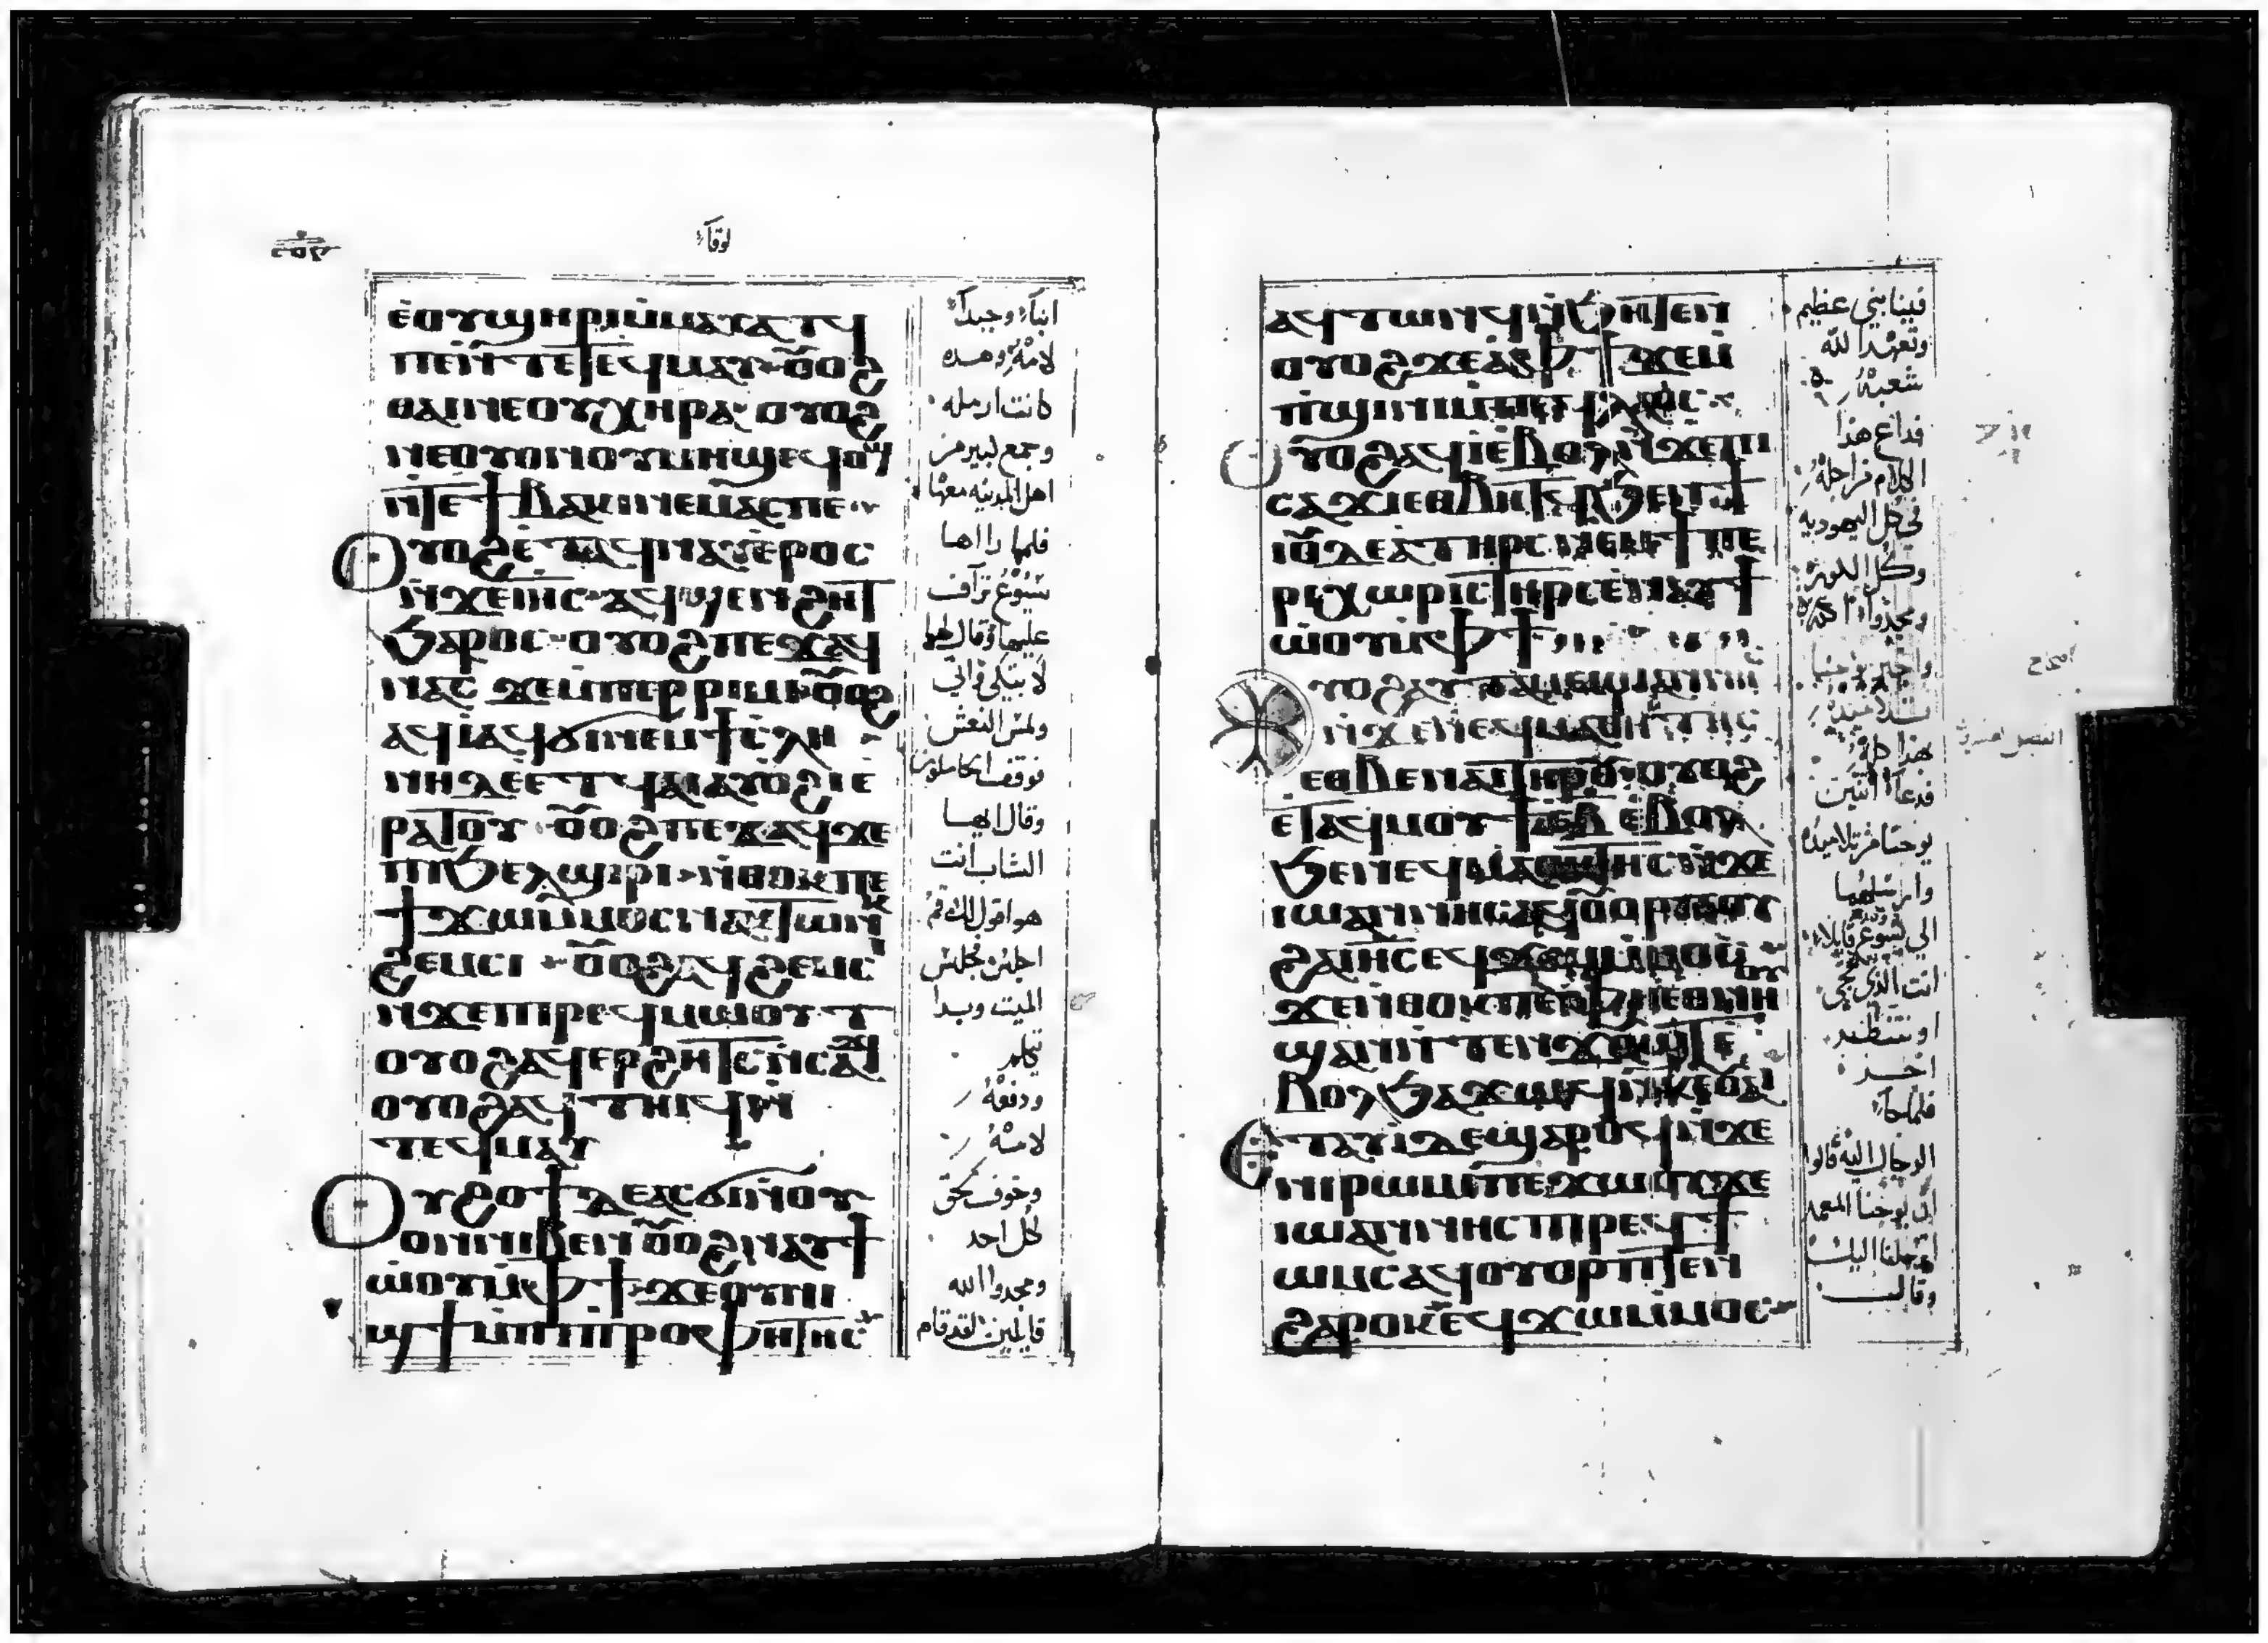 لوقا
ⲉⲟⲩϣⲏⲣⲓ ⲙ̇ⲙⲁⲩⲁⲧϥ
ⲡⲉ ⲛ̇ⲧⲉ ⲧⲉϥⲙⲁⲩ ⲟⲩⲟϩ
ⲑⲁⲓ ⲛⲉ ⲟⲩⲭⲏⲣⲁ ⲟⲩⲟϩ
ⲛⲉⲟⲩⲟⲛ ⲟⲩⲙⲏϣ ⲉϥⲟϣ
ⲛ̇ⲧⲉ ϯⲃⲁⲕⲓ ⲛⲉⲙⲁⲥ ⲡⲉ
ⲟⲩⲟϩ ⲉ̇ⲧⲁϥⲛⲁⲩ ⲉⲣⲟⲥ
ⲛ̇ϫⲉ ⲓⲏⲥ ⲁϥϣⲉⲛϩⲏⲧ
ϧⲁⲣⲟⲥ ⲟⲩⲟϩ ⲡⲉϫⲁϥ
ⲛⲁⲥ ϫⲉ ⲙ̇ⲡⲉⲣⲣⲓⲙⲓ ⲟⲩⲟϩ
ⲁϥⲓ̇ ⲁϥϭⲓ ⲛⲉⲙ ϯⲥ̇ⲗⲏ
ⲛⲏ ⲇⲉ ⲉⲧϥⲁⲓ ⲁⲩⲟ̇ϩⲓ ⲉ̇
ⲣⲁⲧⲟⲩ ⲟⲩⲟϩ ⲡⲉϫⲁϥ ϫⲉ
ⲡⲓϧⲉⲗϣⲓⲣⲓ ⲛ̇ⲑⲟⲕ ⲡⲉ
ϯϫⲱ ⲙ̇ⲙⲟⲥ ⲛⲁⲕ ⲧⲱⲛⲕ
ϩⲉⲙⲥⲓ ⲟⲩⲟϩ ⲁϥϩⲉⲙⲥⲓ
ⲛ̇ϫⲉ ⲡⲓⲣⲉϥⲙⲱⲟⲩⲧ
ⲟⲩⲟϩ ⲁϥⲉⲣϩⲏⲧⲥ ⲛ̇ⲥⲁϫⲓ
ⲟⲩⲟϩ ⲁϥⲧⲏⲓϥ ⲛ̇
ⲧⲉϥⲙⲁⲩ
ⲟⲩϩⲟϯ ⲇⲉ ⲁⲥϭⲓ ⲛ̇ⲟⲩ
ⲟⲛ ⲛⲓⲃⲉⲛ ⲟⲩⲟϩ ⲛⲁⲩϯ
ⲱ̇ⲟⲩ ⲙ̇ⲫϯ ϫⲉ ⲟⲩⲛⲓ
ϣϯ ⲙ̇ⲡⲣⲟⲫⲏⲧⲏⲥ
ابناً وحيداً
لامه وهذه
كانت ارمله
وجمع كبير من
اهل المدينه معها
فلما رااها
يسوع تراف
عليها وقال لها
لا تبكي واتي
ولمس النعش
فوقف الحاملون
وقال ايها
الشاب انت
هو اقول لك قم
اجلس فجلس
الميت وبدا
يتكلم
ودفعه
لامه
وخوف لحق
كل احد
ومجدوا الله
قايلين لقد قام
ⲁϥⲧⲱⲛϥ ⲛ̇ϧⲏⲧⲉⲛ
ⲟⲩⲟϩ ϫⲉ ⲁ̇ ⲫϯ ϫⲉⲙ
ⲡ̇ϣⲓⲛⲓ ⲙ̇ⲡⲉϥⲗⲁⲟⲥ
ⲟⲩⲟϩ ⲁϥⲓ̇ ⲉⲃⲟⲗ ⲛ̇ϫⲉ ⲡⲓ
ⲥⲁϫⲓ ⲉⲑⲃⲏⲧϥ ϧⲉⲛ ϯ
ⲓⲟⲩⲇⲉⲁ ⲧⲏⲣⲥ ⲛⲉⲙ ϯⲡⲉ
ⲣⲓⲭⲱⲣⲓⲥ ⲧⲏⲣⲥ ⲉ̇ⲛⲁⲩϯ
ⲱ̇ⲟⲩ ⲙ̇ⲫϯ
ⲛ̇ϫⲉ ⲛⲉϥⲙⲁⲑⲏⲧⲏⲥ
ⲉⲑⲃⲉ ⲛⲁⲓ ⲧⲏⲣⲟⲩ ⲟⲩⲟϩ
ⲉ̇ⲧⲁϥⲙⲟⲩϯ ⲉ̇ⲃ ⲉ̇ⲃⲟⲗ
ϧⲉⲛ ⲛⲉϥⲙⲁⲑⲏⲧⲏⲥ ⲛ̇ϫⲉ
ⲓⲱⲁⲛⲛⲏⲥ ⲁϥⲟⲩⲟⲣⲡⲟⲩ
ϩⲁ ⲓⲏⲥ ⲉϥϫⲱ ⲙ̇ⲙⲟⲥ
ϫⲉ ⲛ̇ⲑⲟⲕ ⲡⲉ ⲫⲏ ⲉⲑⲛⲏⲟⲩ
ϣⲁⲛ ⲛ̇ⲧⲉⲛϫⲟⲩϣⲧ ⲉ̇
ⲃⲟⲗ ϧⲁϫⲱϥ ⲛ̇ⲕⲉⲟⲩⲁⲓ
ⲉⲧⲁⲩⲓ̇ ⲇⲉ ϣⲁⲣⲟϥ ⲛ̇ϫⲉ
ⲛⲓⲣⲱⲙⲓ ⲡⲉϫⲱⲟⲩ ϫⲉ
ⲓⲱⲁⲛⲛⲏⲥ ⲡⲓⲣⲉϥϯ
ⲱⲙⲥ ⲁϥⲟⲩⲟⲣⲡⲧⲉⲛ
ϩⲁⲣⲟⲕ ⲉ̇ϥϫⲱ ⲙ̇ⲙⲟⲥ
فينا نبي عظيم
وتعهد الله
شعبه
فداع هذا
الكلام من اجله
في كل اليهوديه
وكل الكوره
ومجدوا الله
بهذا كله
فدعا اثنين
يوحنا من تلاميذه
وارسلهما
الي يسوع قايلا
انت الذي تجي
او ننتظر
اخر
فلما جا
الرجال اليه قالوا
ان يوحنا المعمد
ارسلنا اليك
وقال